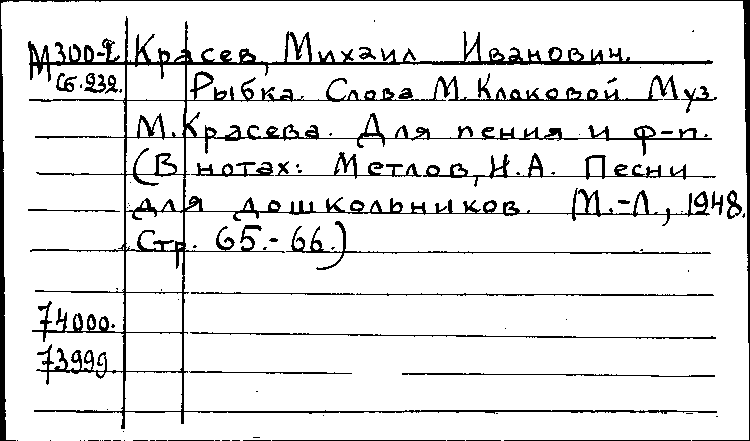 М300-2 Красев, Михаил Иванович.
Сб.232. Рыбка. Слова М.Клоковой Муз
М.Красева. Для пения и ф-п.
(В нотах: Метлов, Н.А. Песни
для дошкольников. М.-Л., 1948.
Стр. 65.-66.)
74000.
73999.